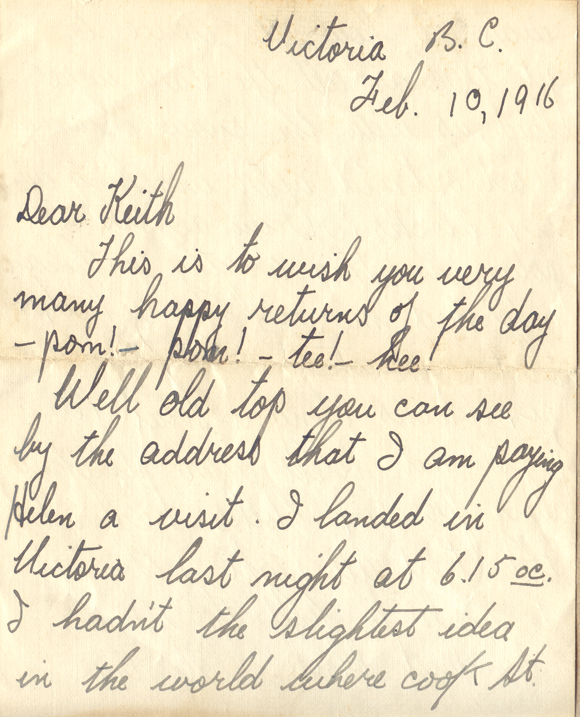 Victoria B. C.
Feb. 10, 1916
Dear Keith
This is to wish you very
many happy returns of the day
- pom! - pom! - tee! - hee!
Well old top you can see
by the address that I am paying
Helen a visit. I landed in
Victoria last night at 6.15 oc.
I hadn't the slightest idea
in the world where cook St.